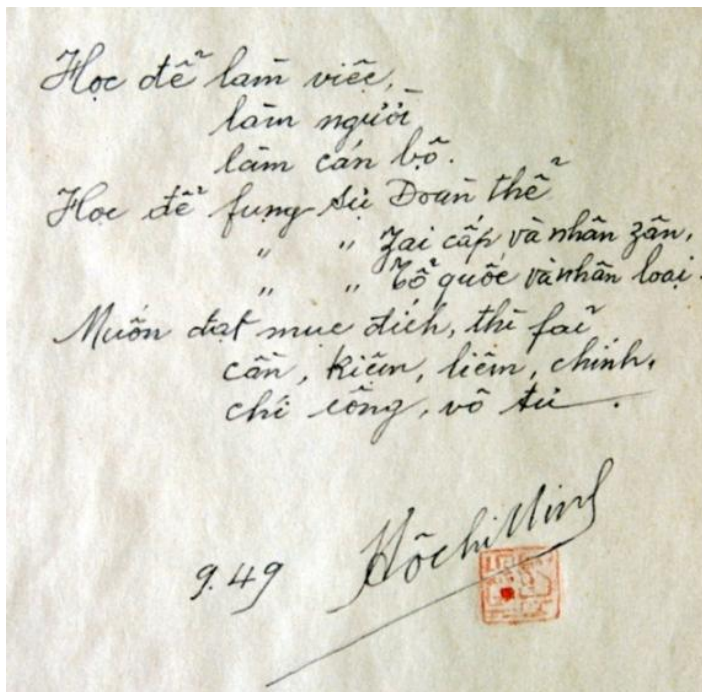 Học để làm việc,
làm người,
làm cán bộ.
Học để fụng sự Đoàn thể
" " Zai cấp và nhân zân,
" " Tổ quốc và nhân loại.
Muốn đạt mục đích, thì fải
cần, kiệm, liêm, chính,
chí công, vô tư.
9.49 Hồ Chí Minh